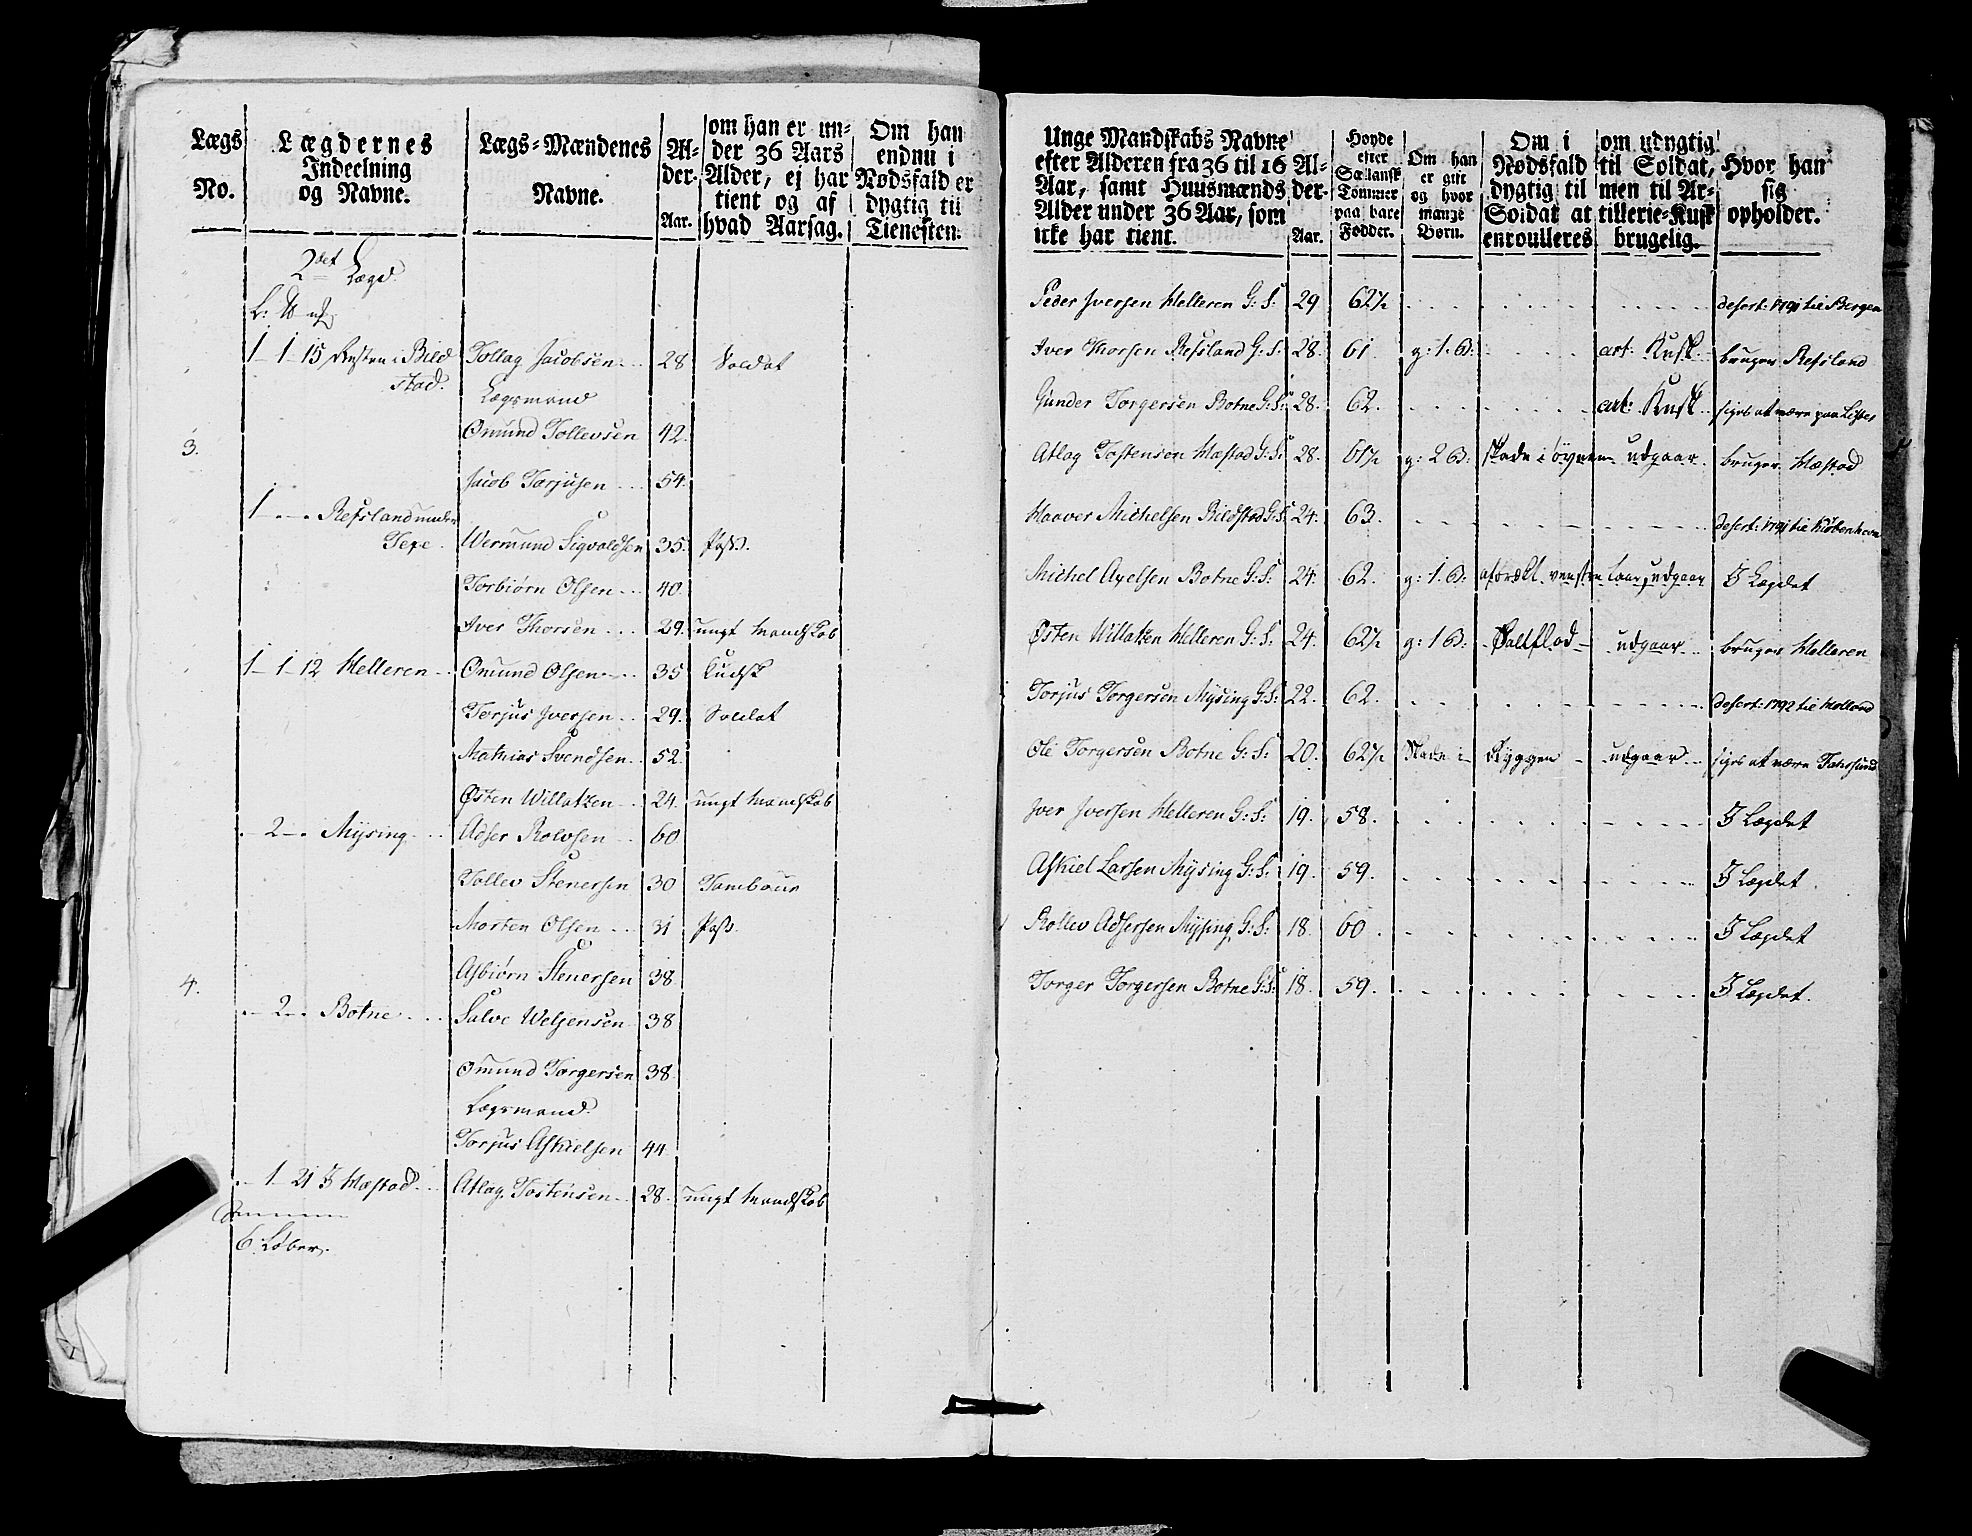 Lægs No.
Lægdernes Indeelning og Navne.
Lægs-Mændenes Navne.
Al-der. Aar.
om han er un-der 36 Aars Alder, ej har tient og af hvad Aarsag.
Om han endnu i Nødsfald er dygtig til Tienesten.
2det Lægd.
1 - 1 - 15 Resten i Bild stad. Tollag Jacobsen 28 Soldat
Lægsmand
Omund Tollevsen 42.
3.
Jacob Torjusen 54.
1 - . - . Refsland under
Wermund Sigvaldsen 35. Pass.
Torbiørn Olsen 40.
Iver Thorsen 29. ungt Mandskab
1 - 1 - 12 Helleren Omund Olsen 35 Kudsk
Terjus Iversen 29. Soldat
Mathias Svendsen 52.
Østen Willatzen 24. ungt Mandskab
. - 2 - . Mysing Adser Rolvsen 60
Tollev Stenersen 30 Tambour
Morten Olsen 31 Pass.
Asbiørn Stenersen 38.
4.
. - 2 - . Botne Salve Welsensen 38
Omund Torgersen 38.
Lægsmand.
Torjus Askielsen 44.
. - 1 - 21 I Hæstad Atlag Tostensen 28. ungt Mandskab
6 Løber.
Unge Mandskabs Navne efter Alderen fra 36 til 16 Aar, samt Huusmænds Alder under 36 Aar, som icke har tient.
Al-der. Aar.
Høyde efter Sællansk Tommer paa bare Fødder.
Om han er gift og hvor mange Børn.
Om i Nødsfald dygtig til Soldat at enroulleres
om udygtig til Soldat, men til Ar-tillerie-Kusk brugelig.
Hvor han sig opholder.
Peder Iversen Helleren G: S: 29 62½ desert: 1791 til Bergen
Iver Thorsen Refsland G: S: 28. 61 g: 1. B: art: Kusk bruger Refsland
Gunder Torgersen Botne G: S: 28. 62. art: Kusk siges at være paa Lister
Atlag Tostensen Hæstad G: S: 28. 61½ g: 2 B: skade i øynene udgaar bruger Hæstad
Haaver Michelsen Bildstad G: S: 24. 63. desert: 1791 til Kiøbenhavn
Michel Axelsen Botne G: S: 24. 62. g: 1. B: aforækt venstre laar, udgaar I Lægdet
Østen Willatzen Helleren G: S: 24. 62½ g: 1 B: Saltflod udgaar bruger Helleren
Torjus Torgersen Mysing G: S: 22. 62. desert: 1792 til Holland
Ole Torgersen Botne G: S: 20. 62½ Skade i Ryggen udgaar siges at være Fahrsund
Iver Iversen Helleren G: S: 19. 58. I Lægdet
Askiel Larsen Mysing G: S: 19. 59. I Lægdet
Rollev Adsersen Mysing G: S: 18. 60. I Lægdet
Torger Torgersen Botne G: S: 18. 59. I Lægdet.